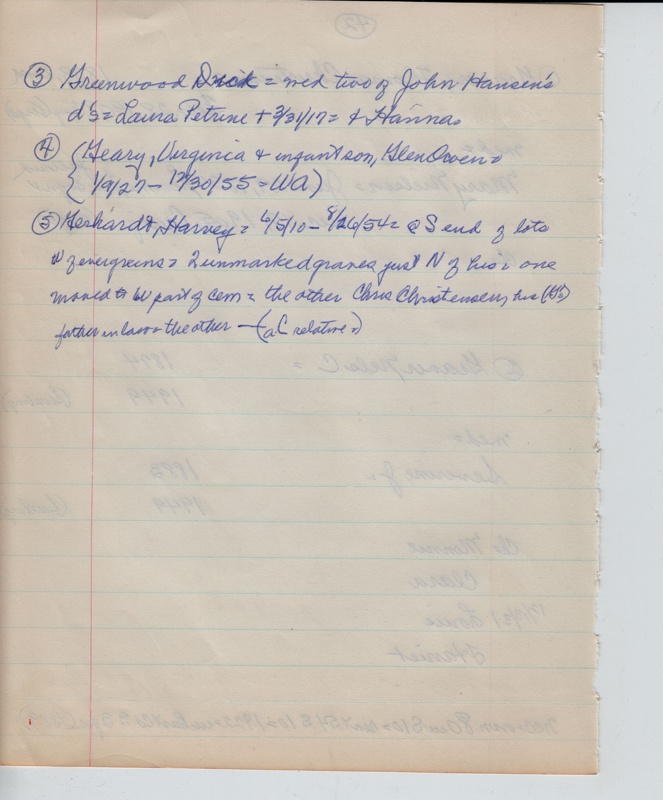 ③ Greenwood Dick = med two of John Hansen's
d's = Laura Petrine + 3/31/17 = & Hanna.
④ {Geary, Virginia & infant son, Glen Owen =
1/9/27 – 12/30/55 = WA)
⑤ Gerhardt, Harvey = 6/5/10 – 8/26/54 = @ S end of lots
W of evergreens = 2 unmarked graves just N of his = one
moved to be part of cem = the other Chris Christensen, his (H's)
father in law = the other – (a C relative =)